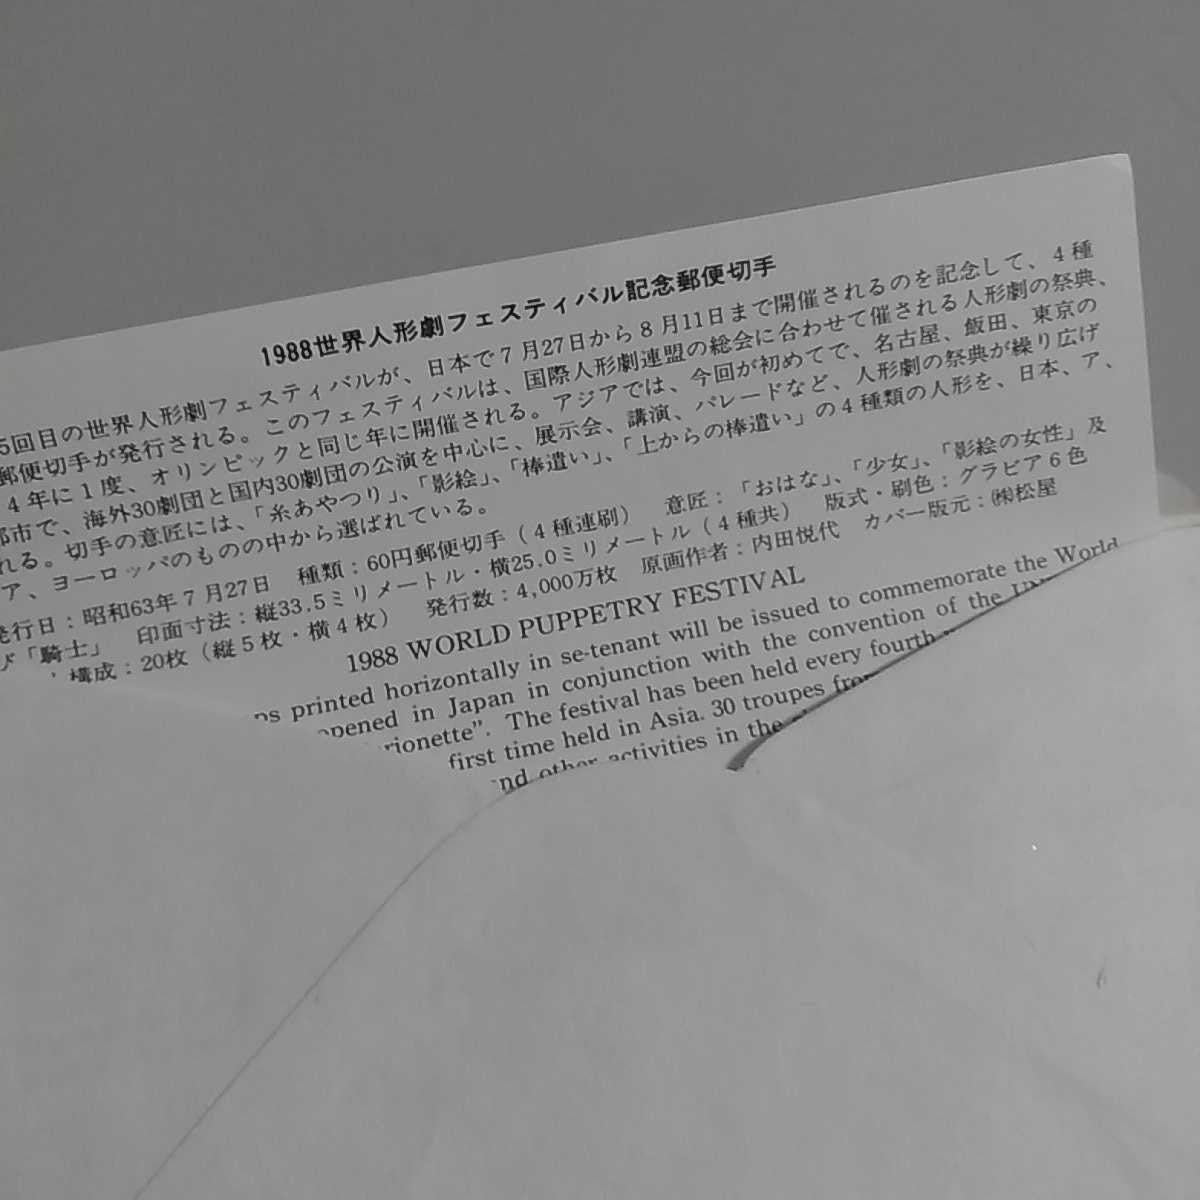 1988世界人形劇フェスティバル記念郵便切手
5回目の世界人形劇フェスティバルが、日本で7月27日から8月11日まで開催されるのを記念して、4種
郵便切手が発行される。このフェスティバルは、国際人形劇連盟の総会に合わせて催される人形劇の祭典、
4年に1度、オリンピックと同じ年に開催される。アジアでは、今回が初めてで、名古屋、飯田、東京の
都市で、海外30劇団と国内30劇団の公演を中心に、展示会、講演、パレードなど、人形劇の祭典が繰り広げ
れる。切手の意匠には、「糸あやつり」、「影絵」、「棒遣い」、「上からの棒遣い」の4種類の人形を、日本、ア、
ア、ヨーロッパのものの中から選ばれている。
発行日：昭和63年7月27日　種類：60円郵便切手（4種連刷）　意匠：「おはな」、「少女」、「影絵の女性」及
び「騎士」　印面寸法：縦33.5ミリメートル・横25.0ミリメートル（4種共）　版式・刷色：グラビア6色
構成：20枚（縦5枚・横4枚）　発行数：4,000万枚　原画作者：内田悦代　カバー版元：㈱松屋
1988 WORLD PUPPETRY FESTIVAL
ps printed horizontally in se-tenant will be issued to commemorate the World
opened in Japan in conjunction with the convention of the
rionette”. The festival has been held every fourth
first time held in Asia. 30 troupes from
nd other activities in the